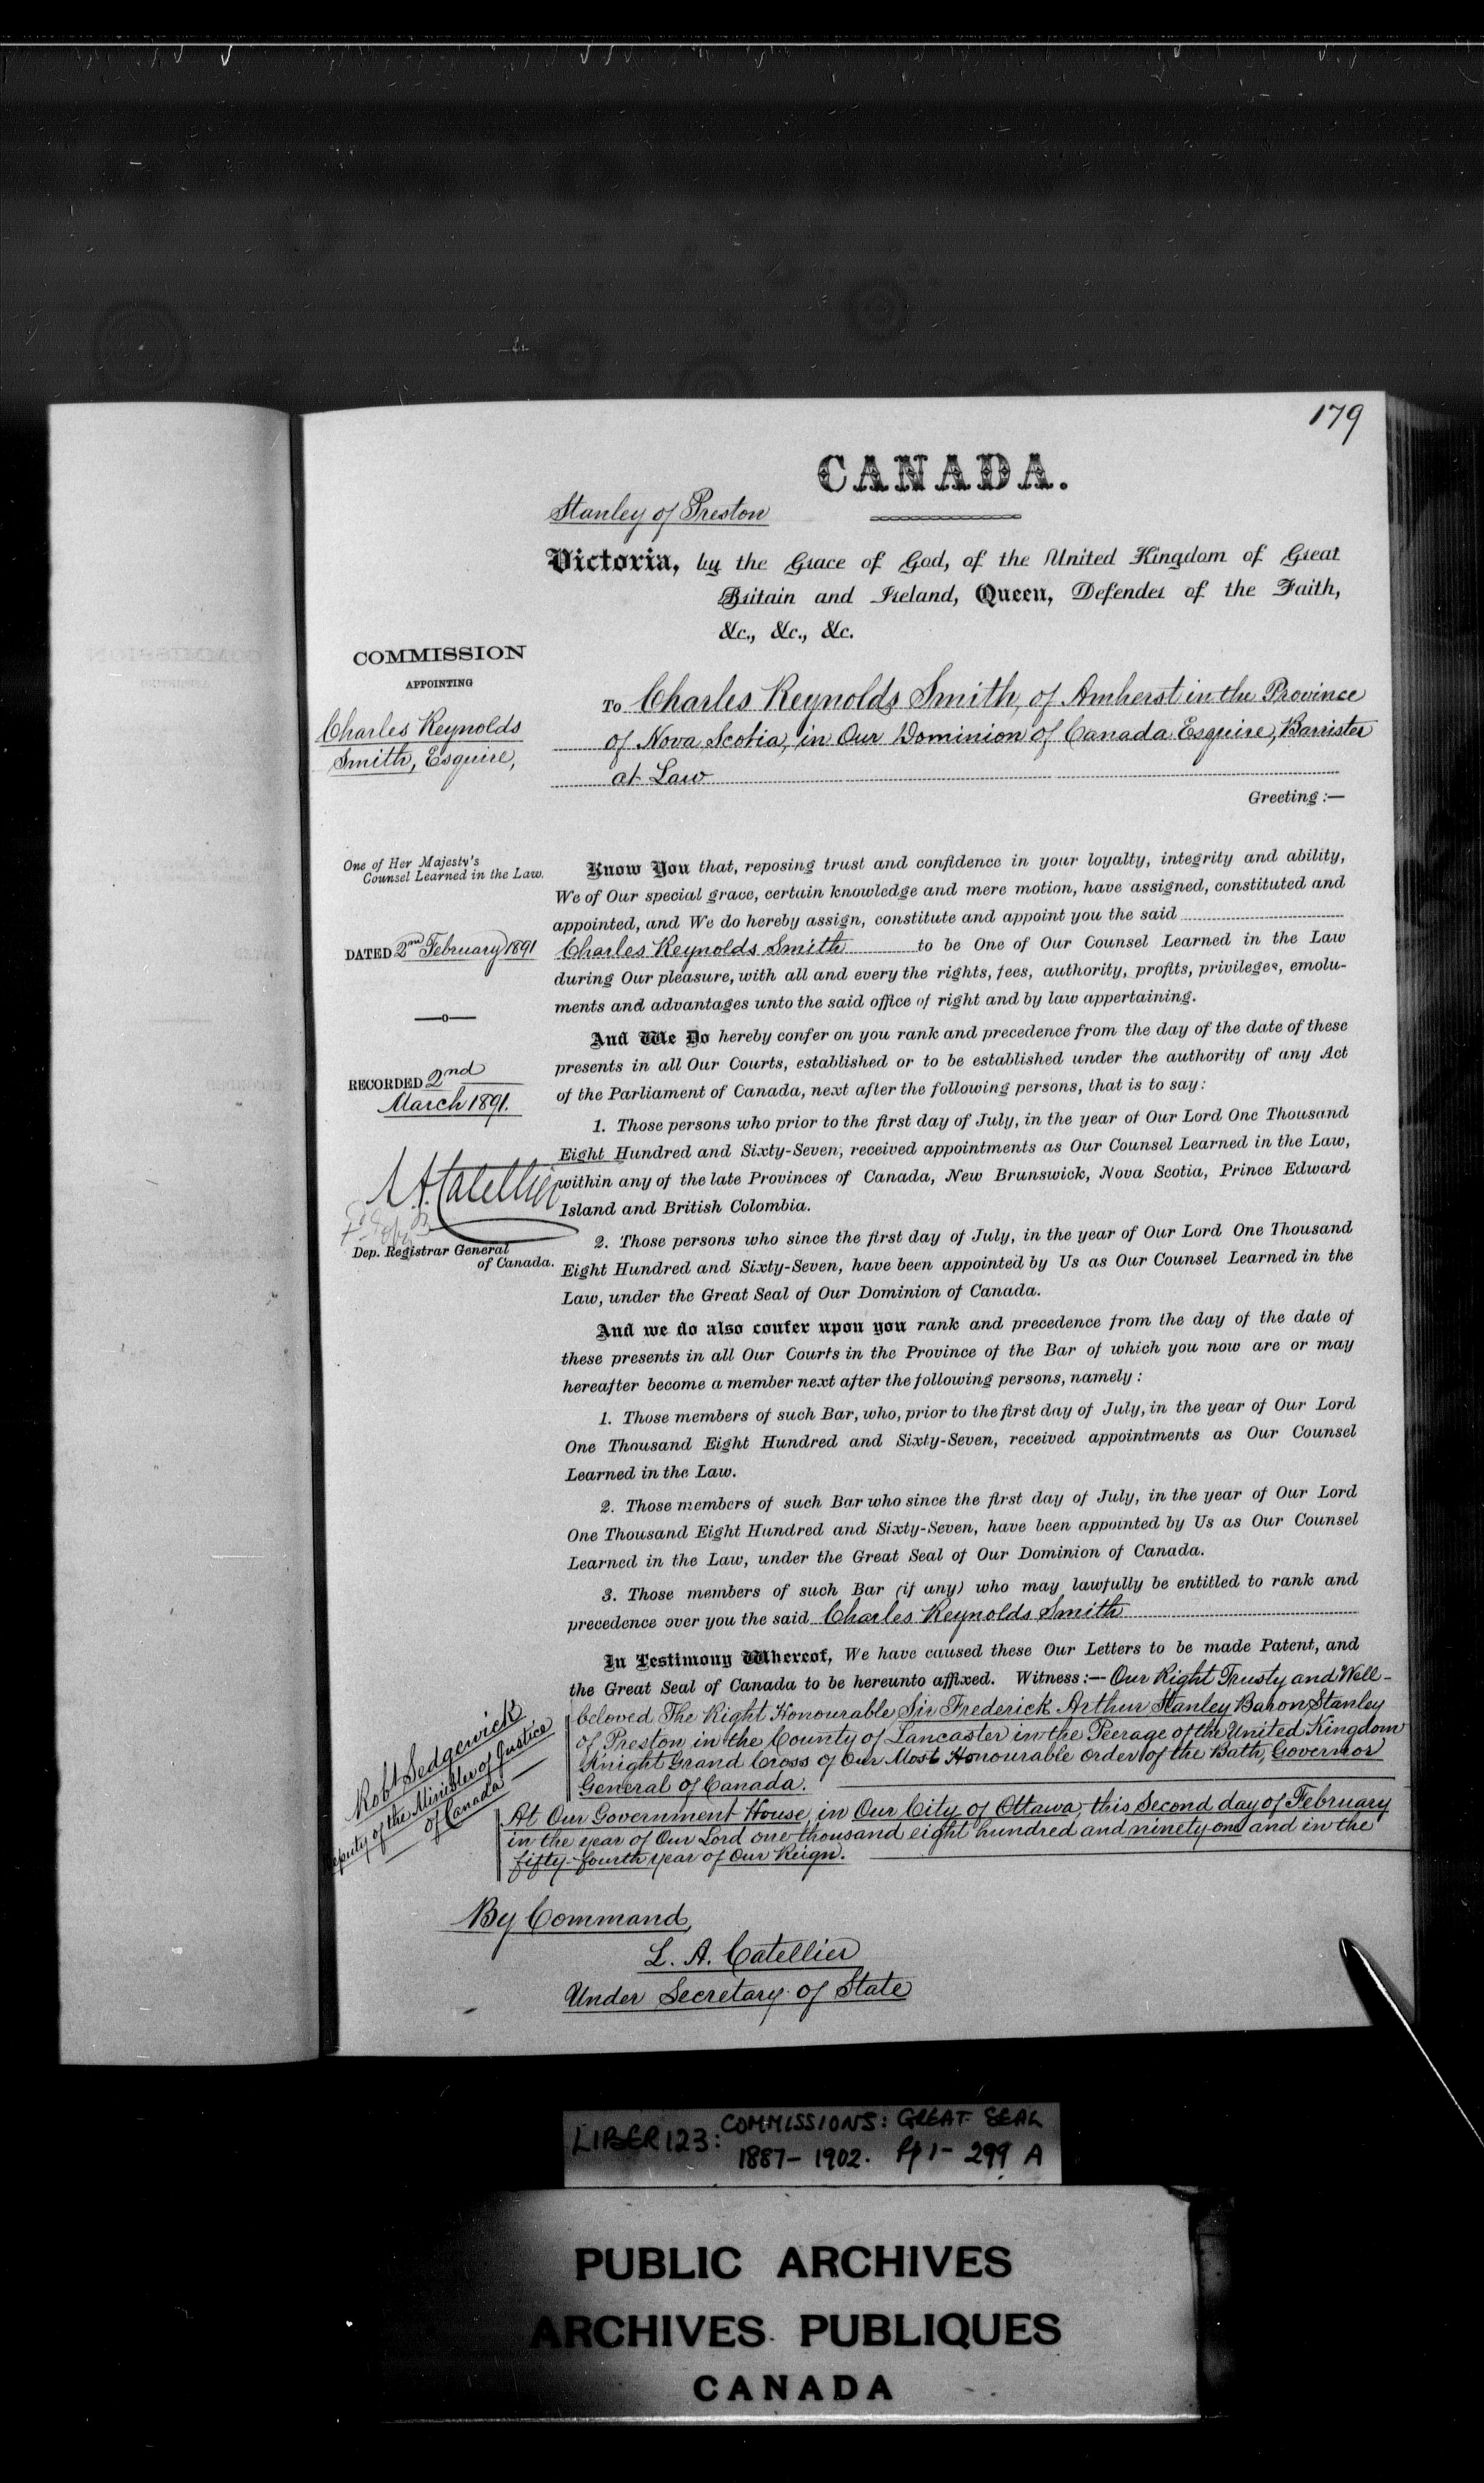 179
CANADA.
Stanley of Preston
Victoria, by the Grace of God, of the United Kingdom of Great
Britain and Ireland, Queen, Defender of the Faith,
&c., &c., &c.
COMMISSION
APPOINTING
Charles Reynolds
Smith, Esquire,
To Charles Reynolds Smith, of Amherst in the Province
of Nova Scotia, in Our Dominion of Canada Esquire, Barrister
at Law
Greeting:—
One of Her Majesty's
Counsel Learned in the Law.
DATED 2nd February 1891
RECORDED 2nd
March 1891.
L.A. Catellier
Dep. Registrar General
of Canada.
Know You that, reposing trust and confidence in your loyalty, integrity and ability,
We of Our special grace, certain knowledge and mere motion, have assigned, constituted and
appointed, and We do hereby assign, constitute and appoint you the said
Charles Reynolds Smith to be One of Our Counsel Learned in the Law
during Our pleasure, with all and every the rights, fees, authority, profits, privileges, emolu-
ments and advantages unto the said office of right and by law appertaining.
And We Do hereby confer on you rank and precedence from the day of the date of these
presents in all Our Courts, established or to be established under the authority of any Act
of the Parliament of Canada, next after the following persons, that is to say:
1. Those persons who prior to the first day of July, in the year of Our Lord One Thousand
Eight Hundred and Sixty-Seven, received appointments as Our Counsel Learned in the Law,
within any of the late Provinces of Canada, New Brunswick, Nova Scotia, Prince Edward
Island and British Colombia.
2. Those persons who since the first day of July, in the year of Our Lord One Thousand
Eight Hundred and Sixty-Seven, have been appointed by Us as Our Counsel Learned in the
Law, under the Great Seal of Our Dominion of Canada.
And we do also confer upon you rank and precedence from the day of the date of
these presents in all Our Courts in the Province of the Bar of which you now are or may
hereafter become a member next after the following persons, namely:
1. Those members of such Bar, who, prior to the first day of July, in the year of Our Lord
One Thousand Eight Hundred and Sixty-Seven, received appointments as Our Counsel
Learned in the Law.
2. Those members of such Bar who since the first day of July, in the year of Our Lord
One Thousand Eight Hundred and Sixty-Seven, have been appointed by Us as Our Counsel
Learned in the Law, under the Great Seal of Our Dominion of Canada.
3. Those members of such Bar (if any) who may lawfully be entitled to rank and
precedence over you the said Charles Reynolds Smith
In Testimony Whereof, We have caused these Our Letters to be made Patent, and
the Great Seal of Canada to be hereunto affixed. Witness:— Our Right Trusty and Well-
beloved The Right Honourable Sir Frederick Arthur Stanley Baron Stanley
of Preston in the County of Lancaster in the Peerage of the United Kingdom
Knight Grand Cross of Our Most Honourable order of the Bath, Governor
General of Canada.
At Our Government House, in Our City of Ottawa, this Second day of February
in the year of Our Lord one thousand eight hundred and ninety one and in the
fifty-fourth year of Our Reign.
Robt Sedgewick
Deputy of the Minister of Justice
of Canada
By Command,
L. A. Catellier
Under Secretary of State
LIBER 123: COMMISSIONS: GREAT SEAL
1887-1902. Pp 1-299 A
PUBLIC ARCHIVES
ARCHIVES PUBLIQUES
CANADA